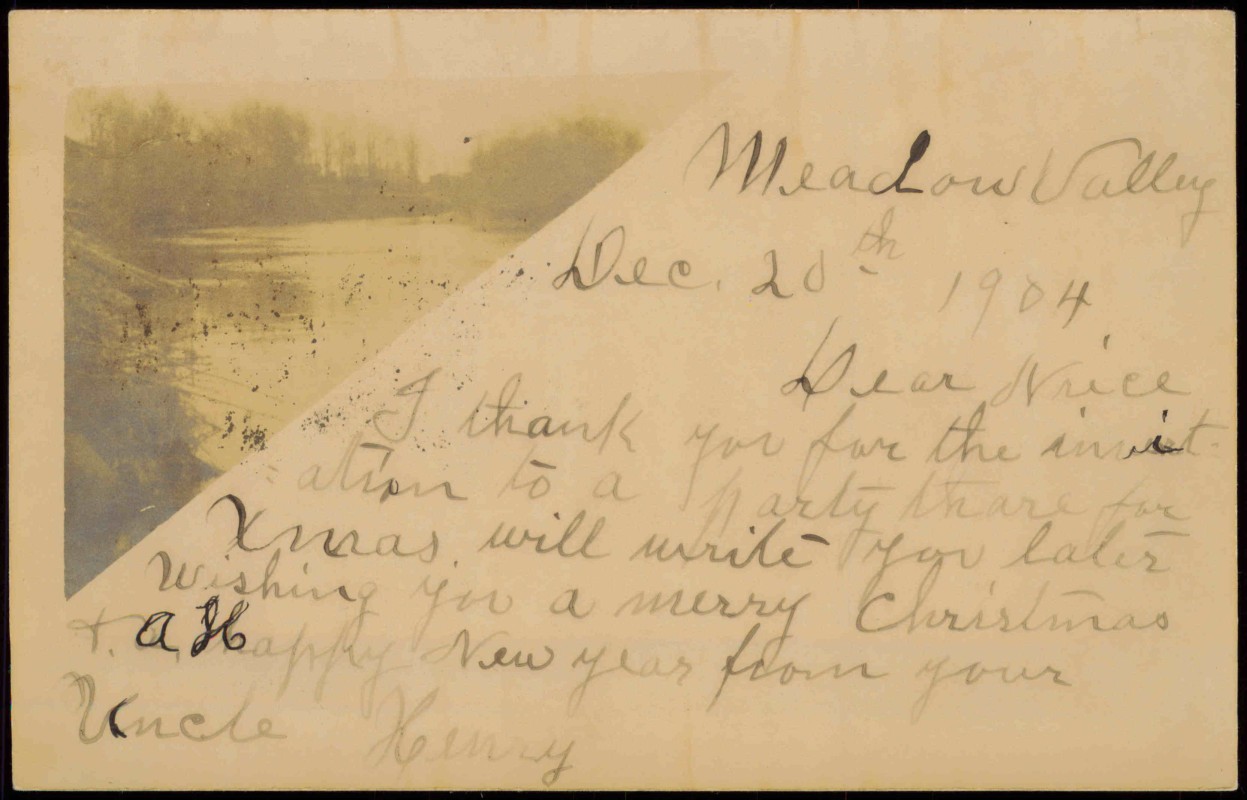 Meadow Valley
Dec. 20th 1904
Dear Neice
I thank you for the invit-
=ation to a party thare for
Xmas will write you later
Wishing you a merry Christmas
+ a Happy New year from your
Uncle Henry